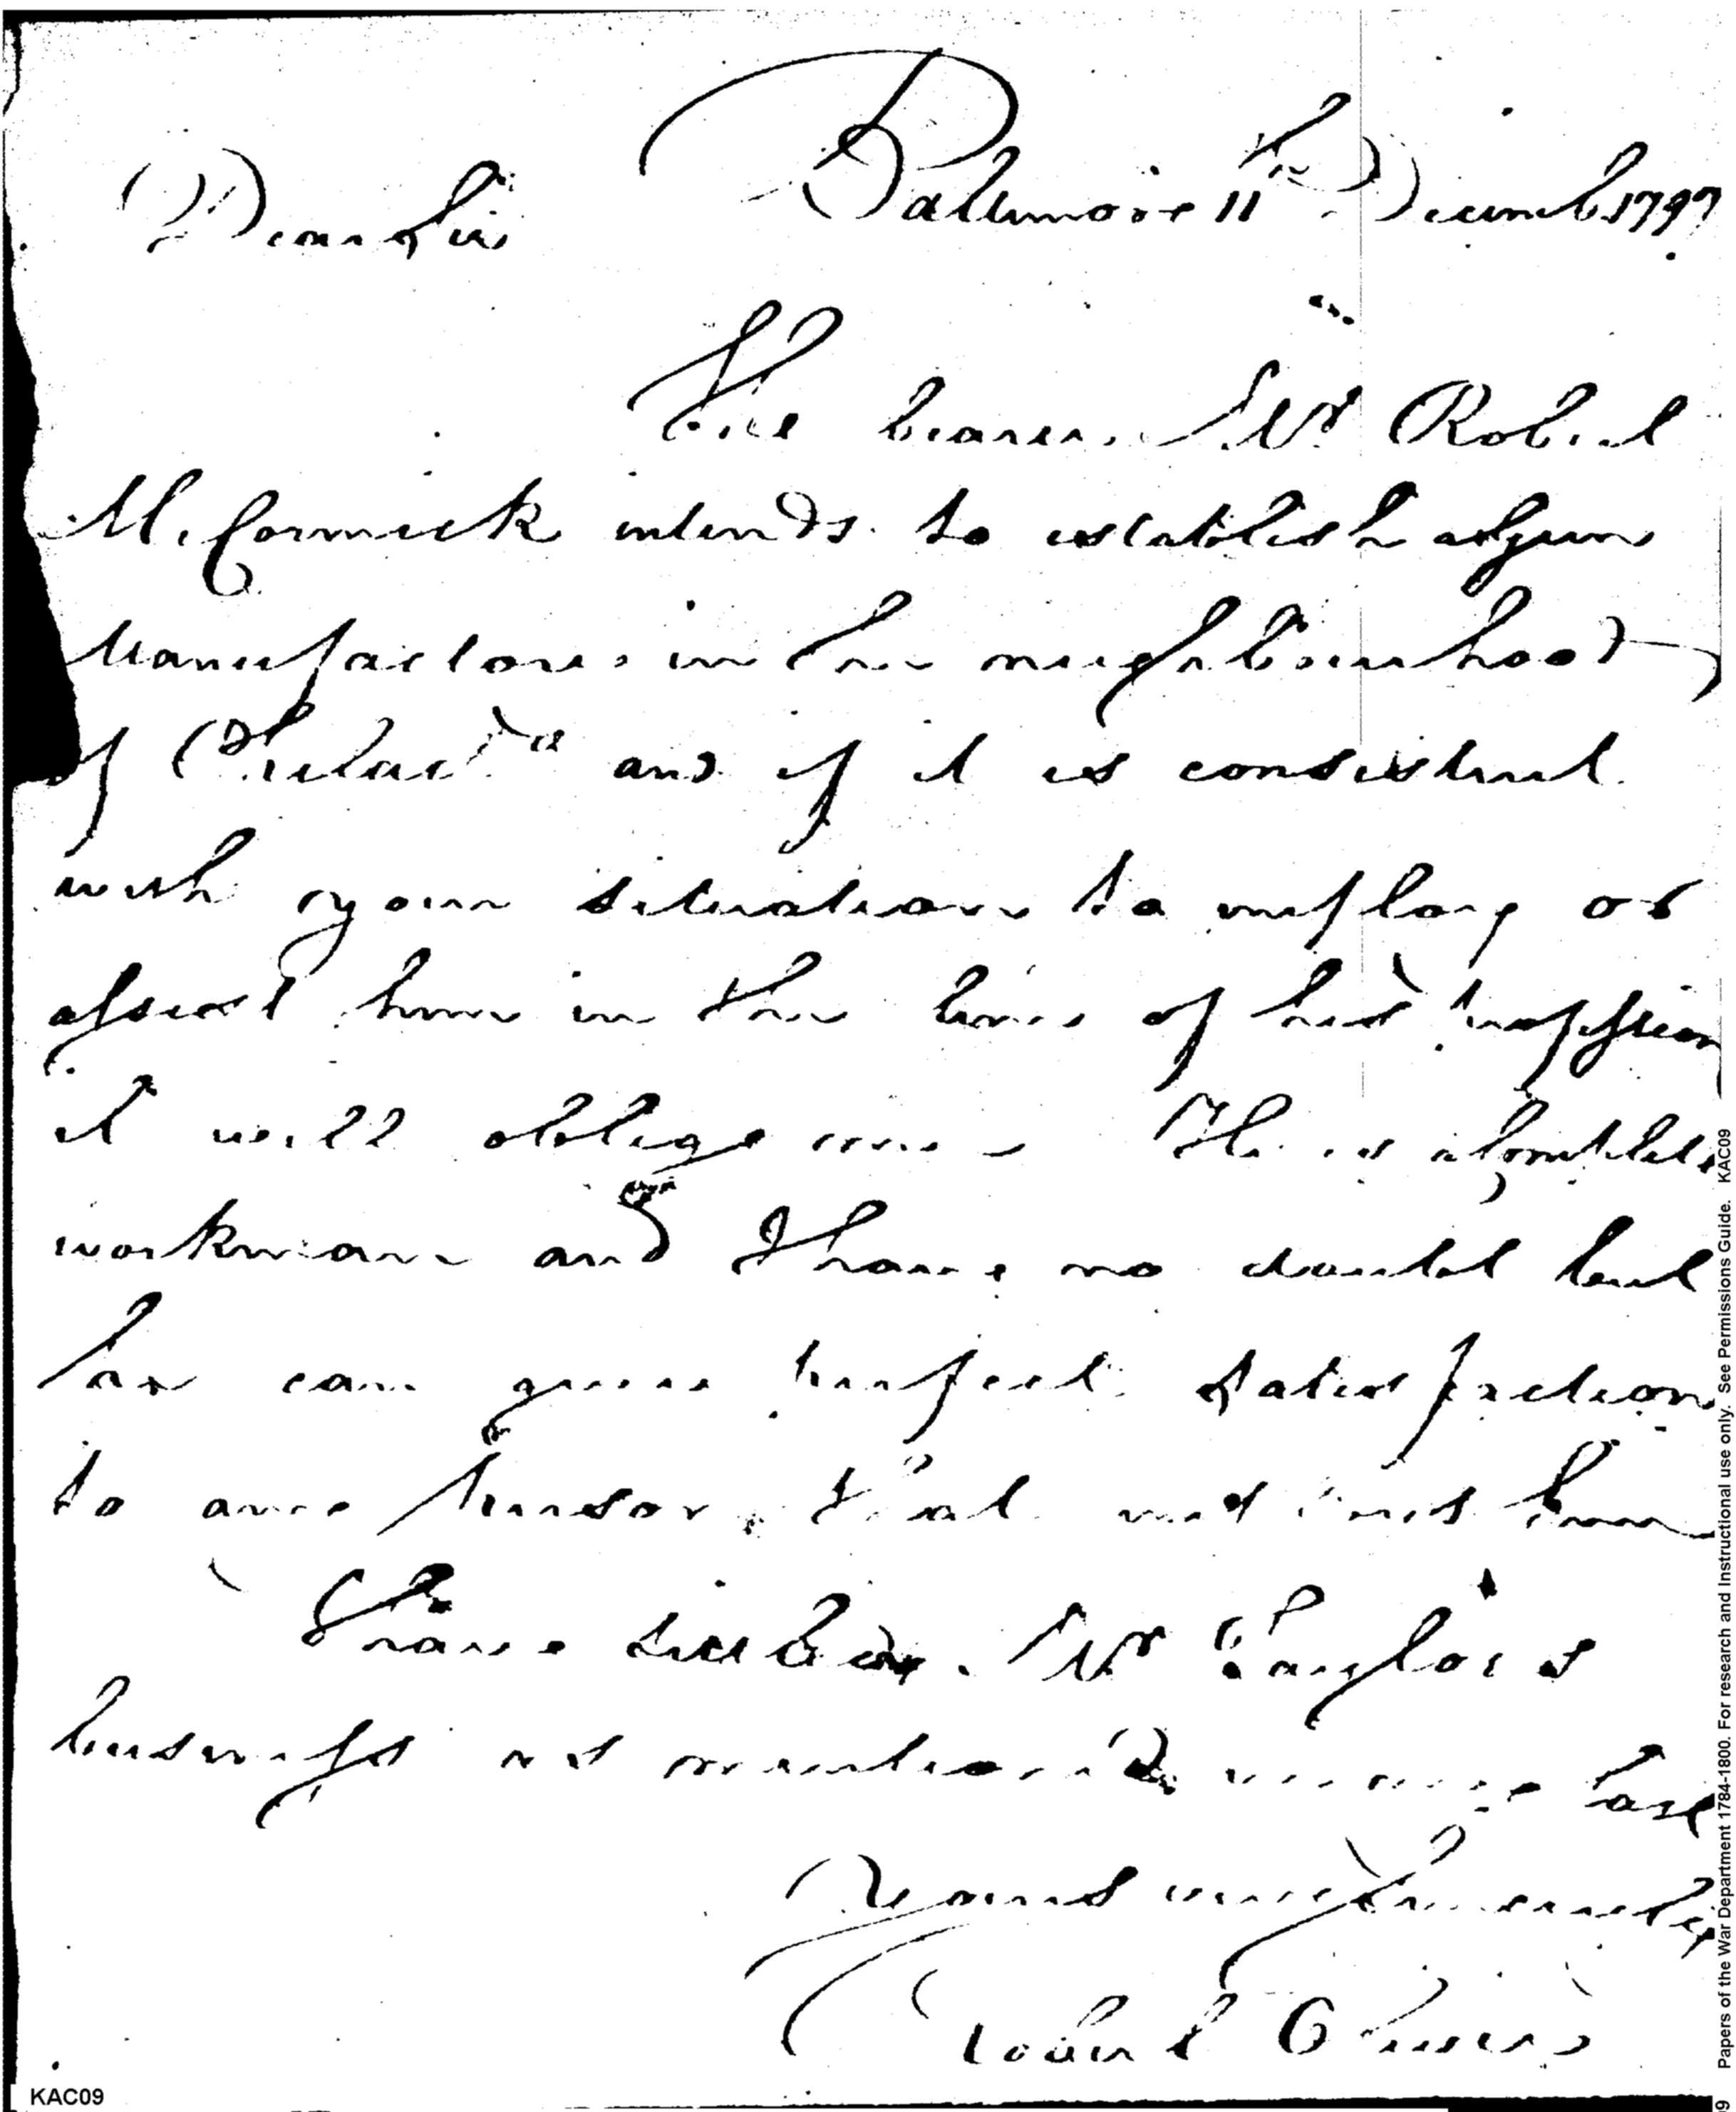 Baltimore 11th Decemb. 1797
Dear Sir
The bearer Mr Robert
McCormick intends to establish a Gun
Manufactory in the neighbourhood
of Philad'a and if it is consistent
with your situation to imploy or
assist him in the line of his profession
it will oblige me He is a Complete
workman and I have no doubt but
he can give perfect satisfaction
to any person that
I have Mr Taylor's
business as mention'd in my last
Yours
Robert
KAC09
Papers of the War Department 1784-1800. For research and Instructional use only. See Permissions Guide. KAC09